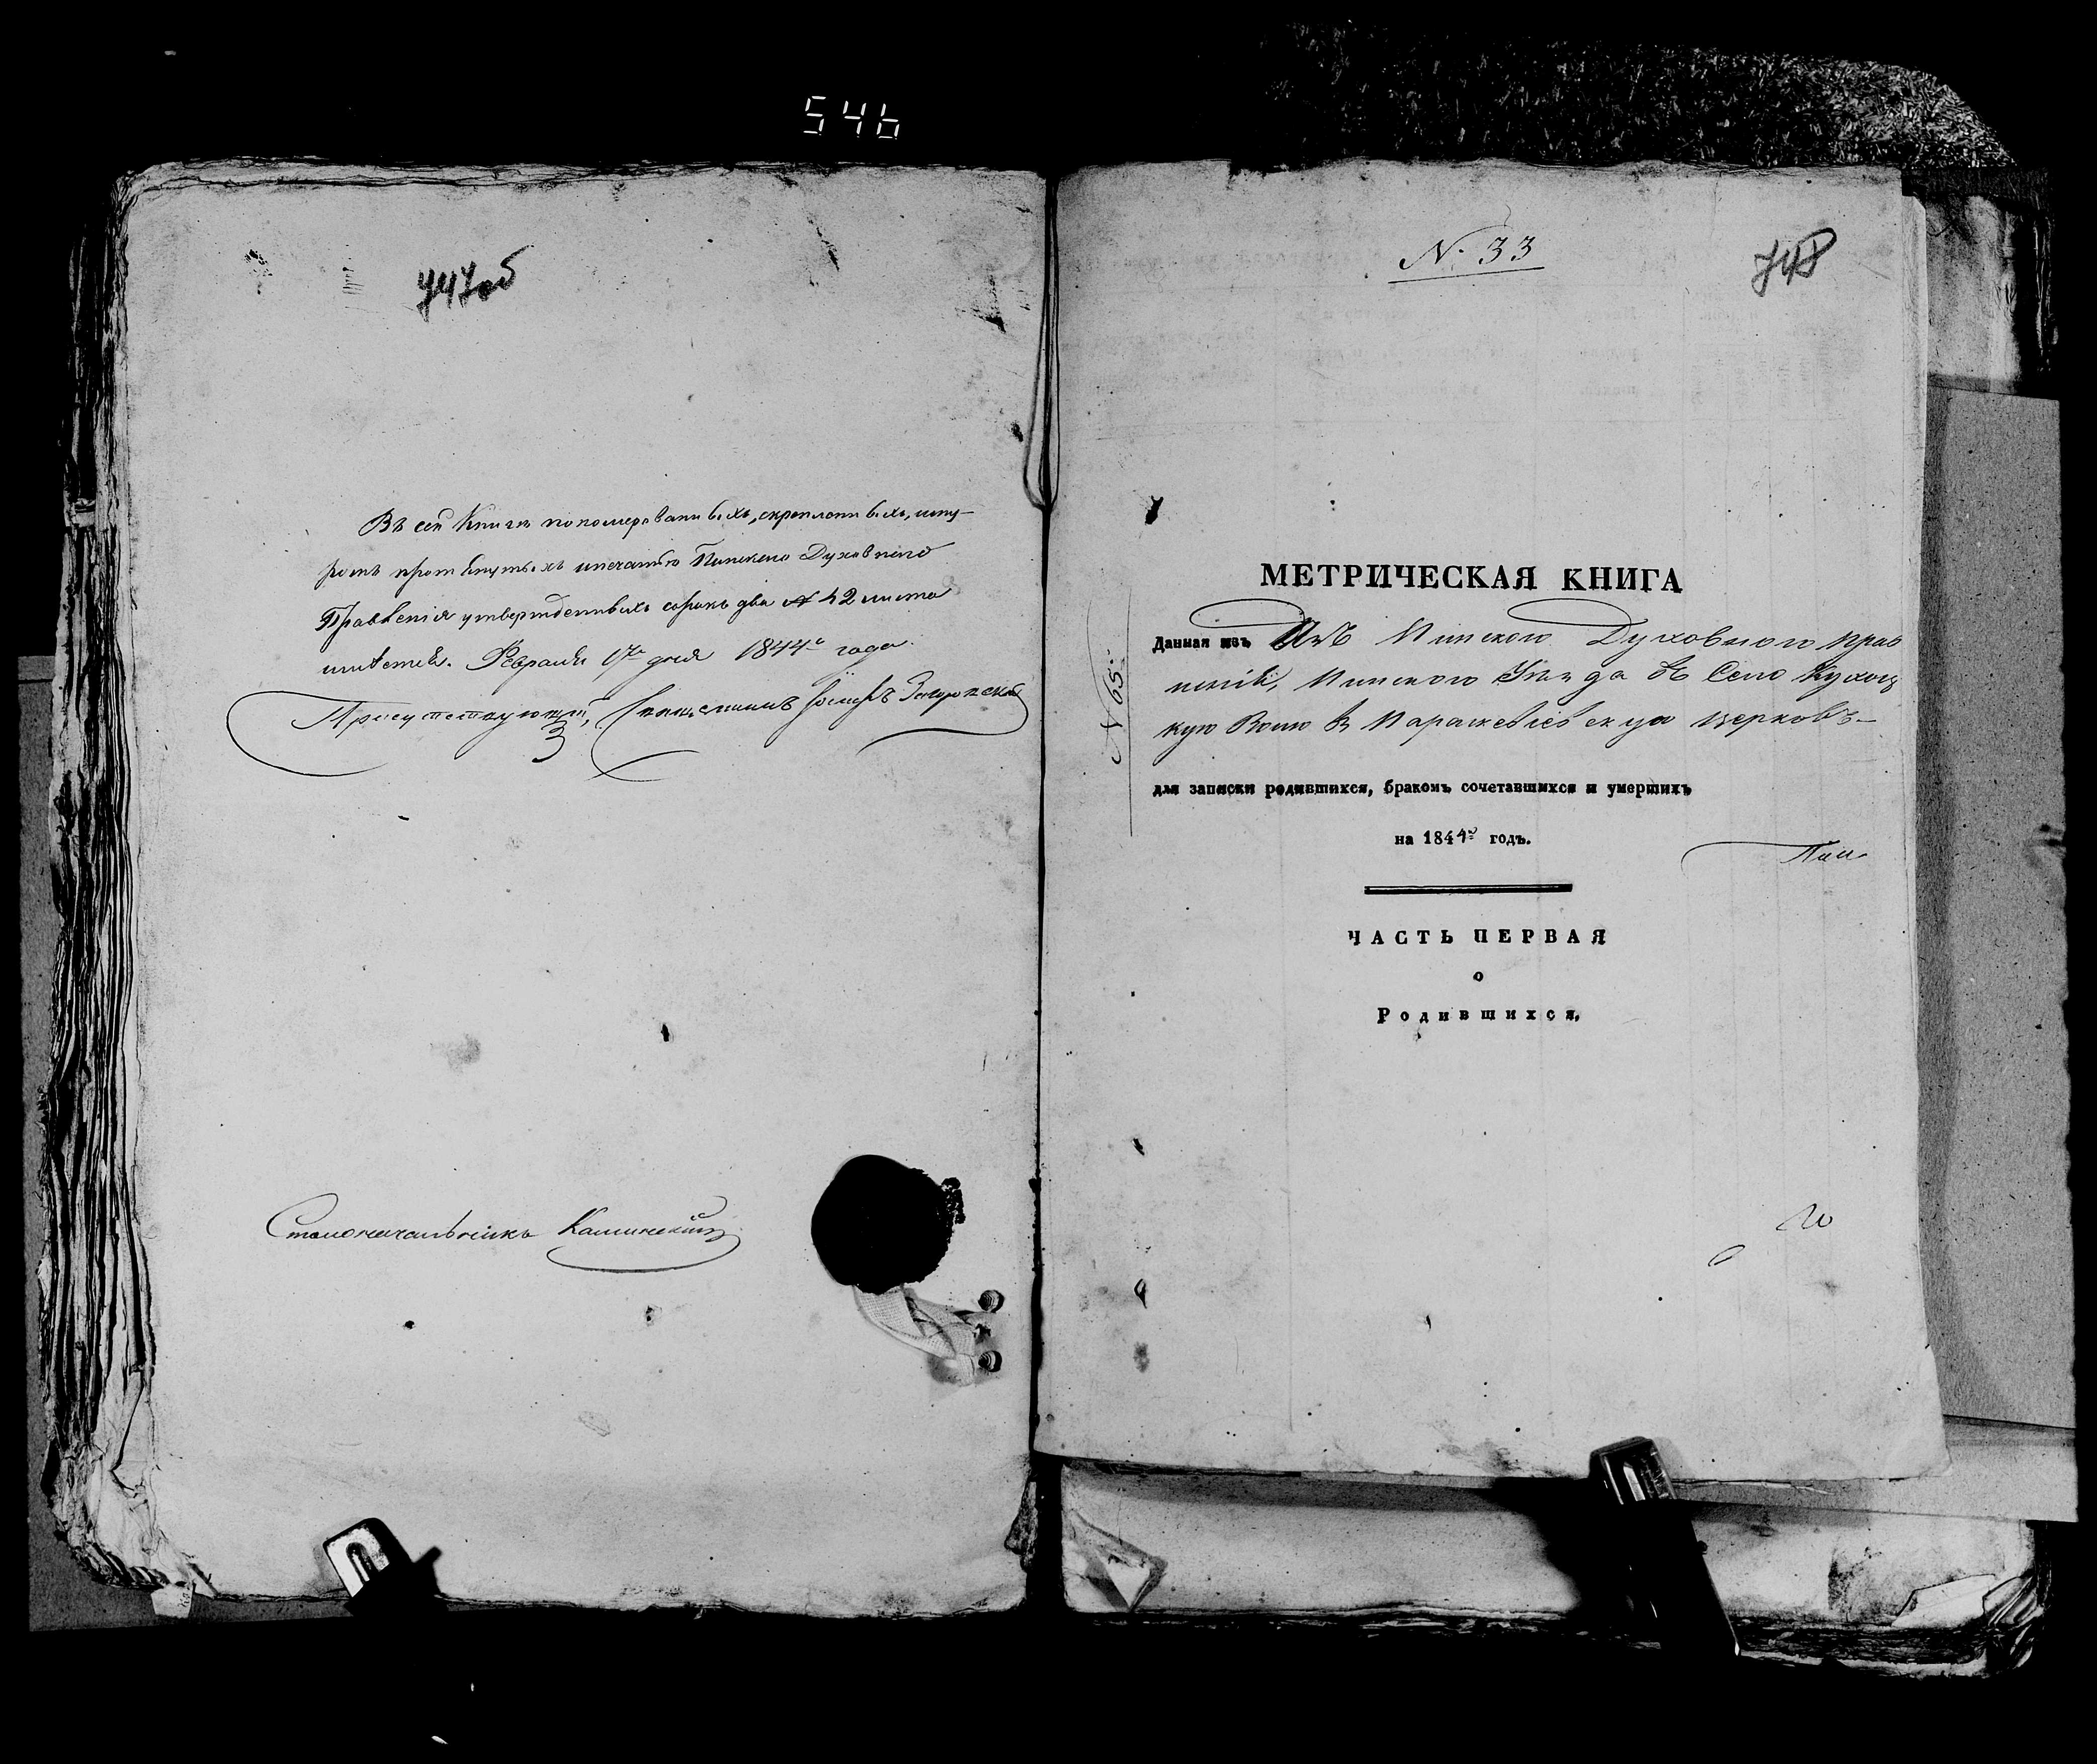 546
747об
Въ сей Книге пономерованныхъ, скрепленныхъ, шну-
ромъ протянутыхъ и печатью Пинского Духовного
Правления утвержденныхъ сорокъ два № 42 листа
имеется. Февраля 17го дня 1844го года.
Присутствующий, Священникъ Иосифъ
Столоначальникъ Калинский
№ 33
748
№ 65
МЕТРИЧЕСКАЯ КНИГА
Данная изъ Изъ Пинского Духовного Прав
ления, Пинского Уезда въ Село Кухоц
кую Волю въ Параскевіевскую церковъ
для записки родившихся, бракомъ сочетавшихся и умершихъ
на 1844й годъ.
ЧАСТЬ ПЕРВАЯ
о
Родившихся.